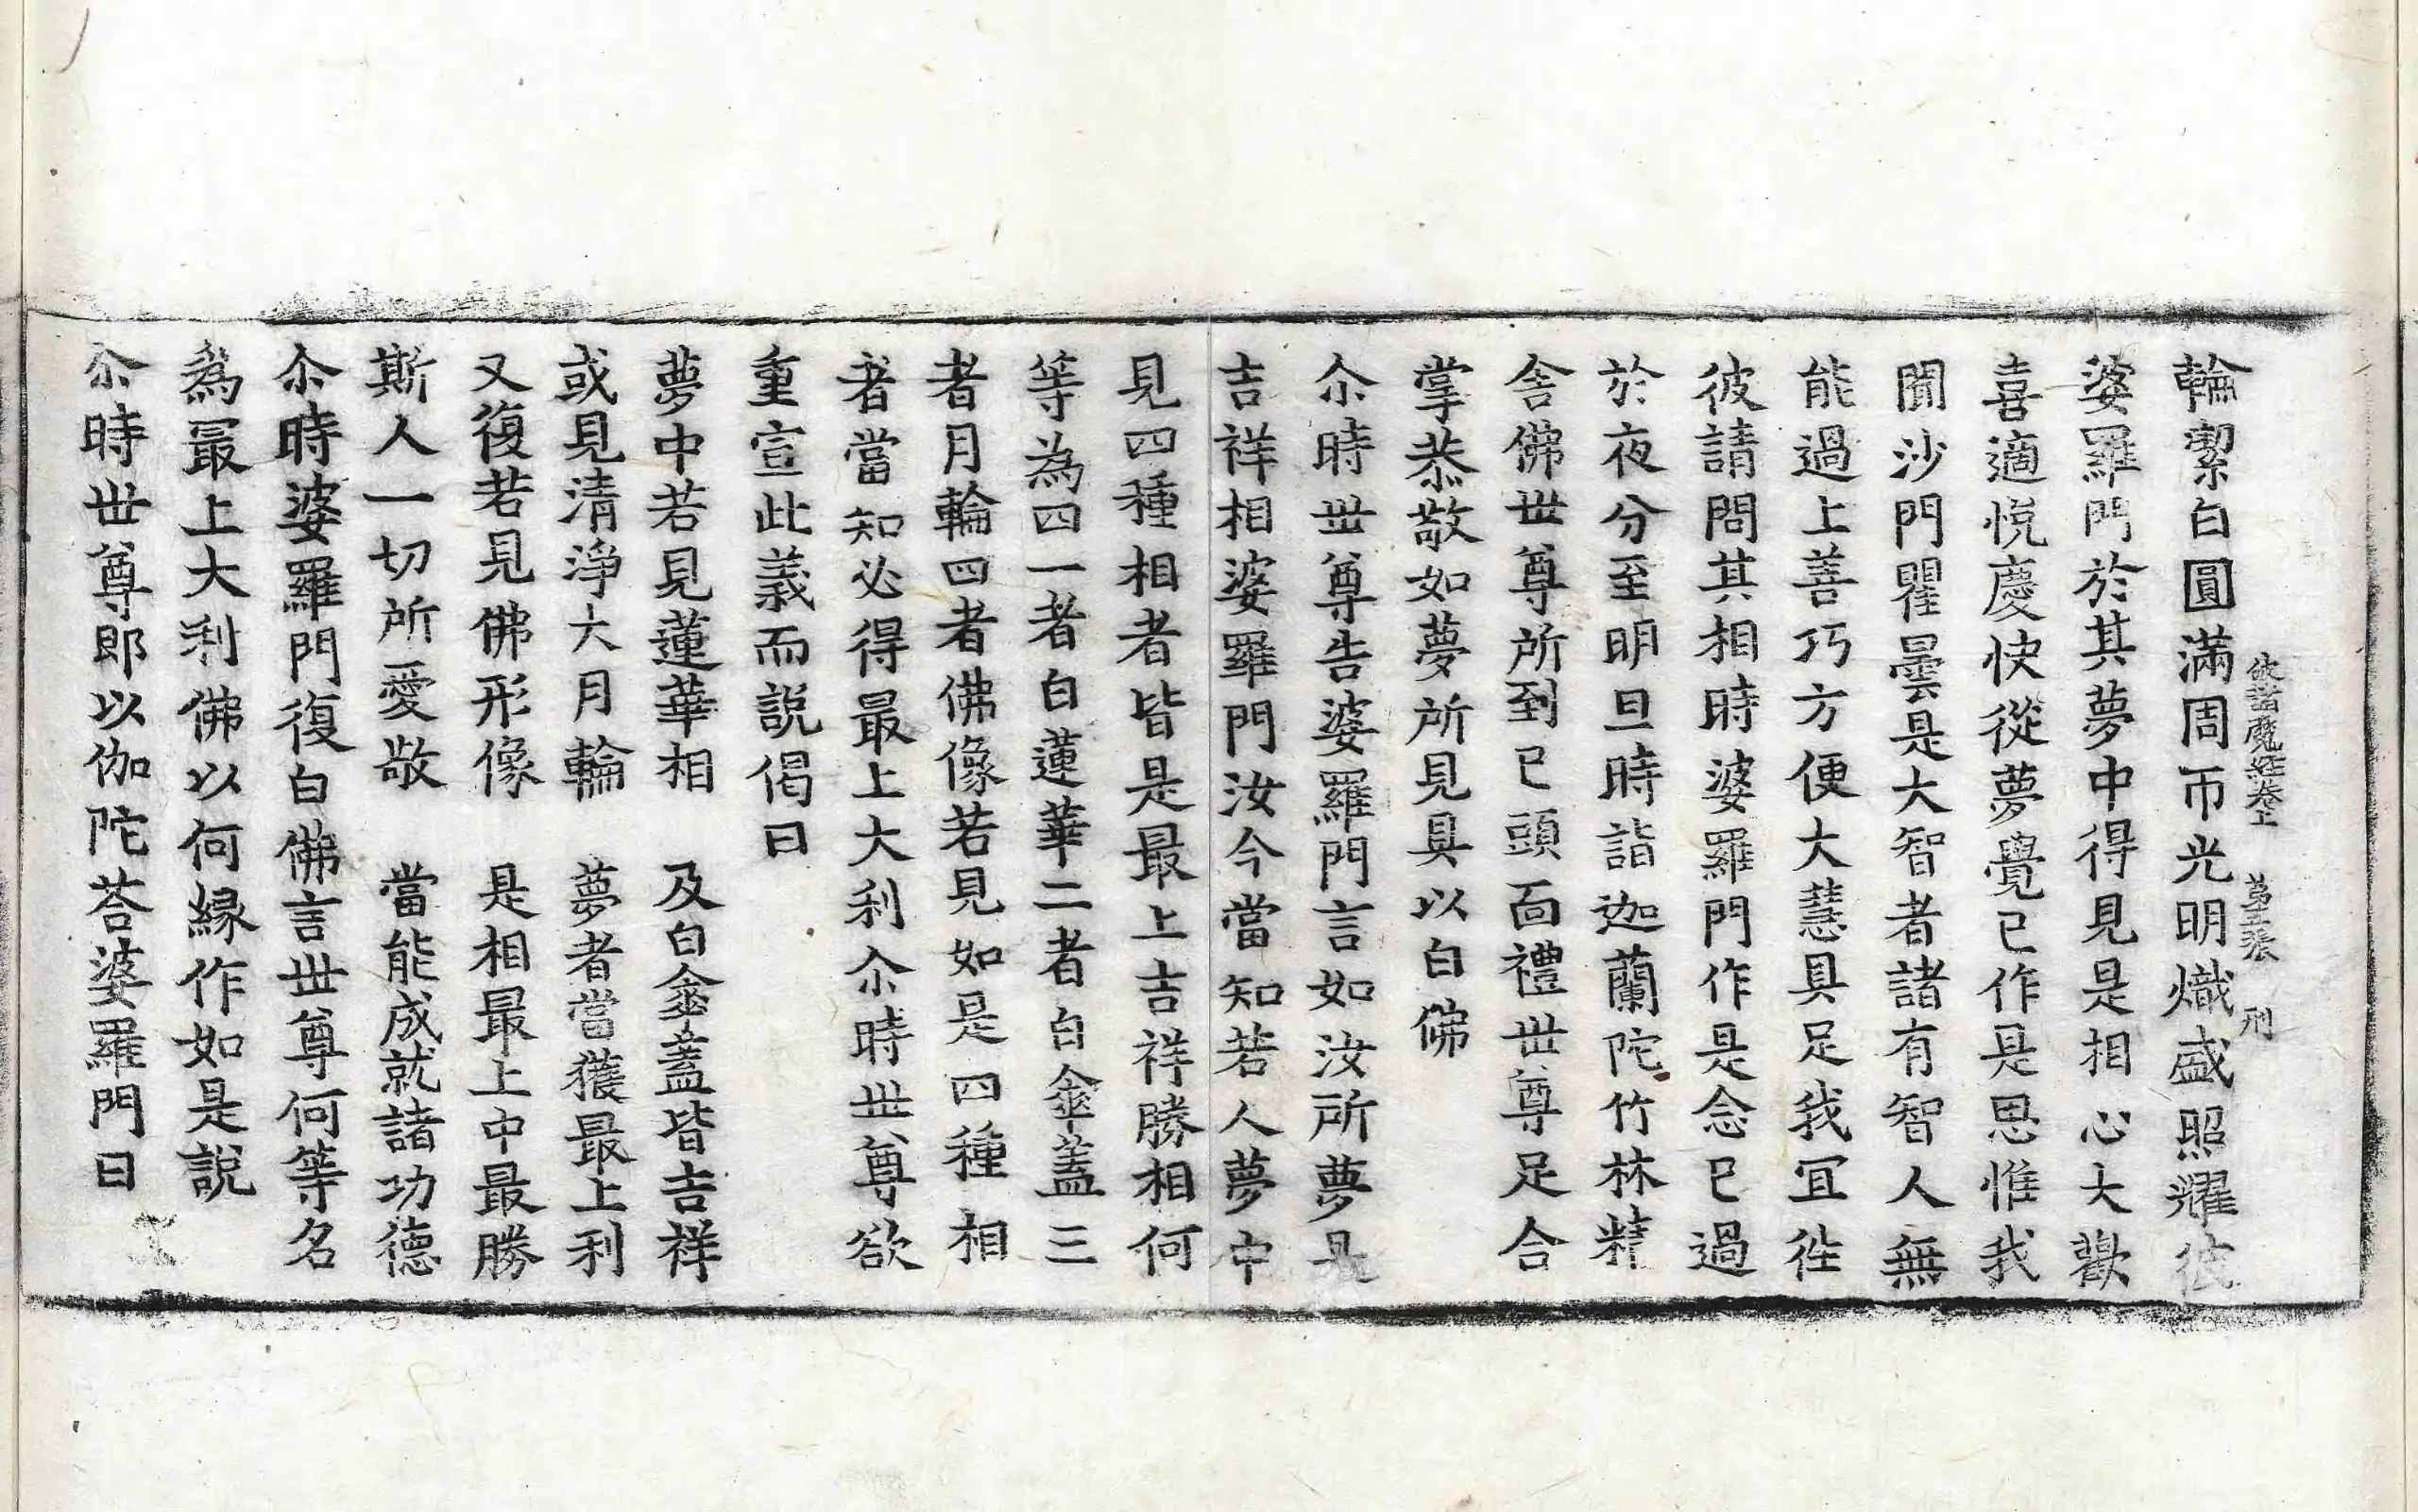 輪潔白圓滿周帀光明熾盛照耀彼
伏諸魔經卷上 第三張 刑
婆羅門於其夢中得見是相心大歡
喜適悅慶快從夢覺已作是思惟我
聞沙門瞿曇是大智者諸有智人無
能過上善巧方便大慧具足我宜徃
彼請問其相時婆羅門作是念已過
於夜分至明旦時詣迦蘭陀竹林精
舍佛世尊所到已頭面禮世尊足合
掌恭敬如夢所見具以白佛
尒時世尊告婆羅門言如汝所夢是
吉祥相婆羅門汝今當知若人夢中
見四種相者皆是最上吉祥勝相何
等為四一者白蓮華二者白傘蓋三
者月輪四者佛像若見如是四種相
者當知必得最上大利尒時世尊欲
重宣此義而説偈曰
夢中若見蓮華相　及白傘蓋皆吉祥
或見清淨大月輪　夢者當獲最上利
又復若見佛形像　是相最上中最勝
斯人一切所愛敬　當能成就諸功德
尒時婆羅門復白佛言世尊何等名
為最上大利佛以何緣作如是説
尒時世尊即以伽陀荅婆羅門曰